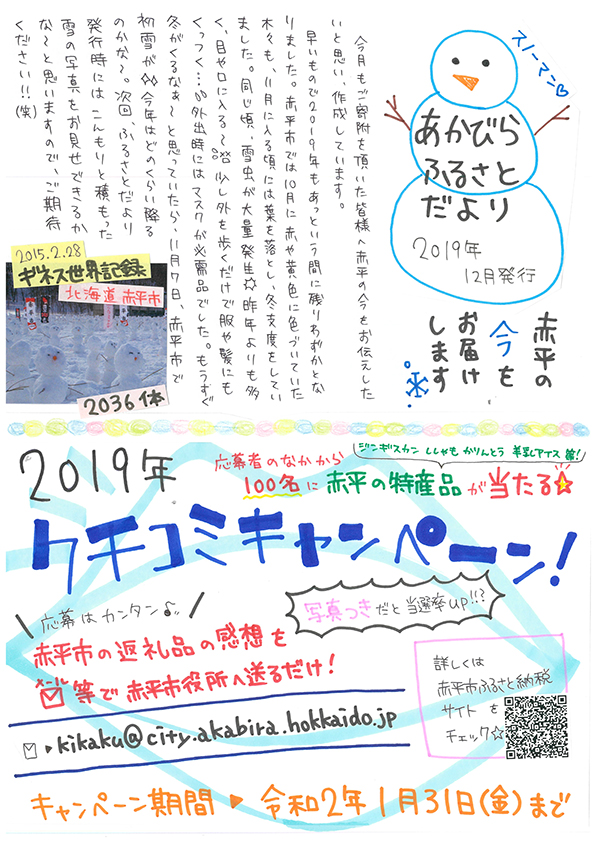 スノーマン♡
あかびら
ふるさと
だより
2019年
12月発行
赤平の
今を
お届け
します
今月もご寄附を頂いた皆様へ赤平の今をお伝えした
いと思い、作成しています。
早いもので2019年もあっという間に残りわずかとな
りました。赤平市では10月に赤や黄色に色づいていた
木々も、11月に入る頃には葉を落とし、冬支度をしてい
ました。同じ頃、雪虫が大量発生☆昨年よりも多
く、目や口に入る〜少し外を歩くだけで服や髪にも
くっつく…外出時にはマスクが必需品でした。もうすぐ
冬がくるなぁ〜と思っていたら、11月7日、赤平市で
初雪が◇◇今年はどのくらい降る
のかな〜。次回、ふるさとだより
発行時には、こんもりと積もった
雪の写真をお見せできるか
な〜と思いますので、ご期待
ください!!(笑)
2015.2.28
ギネス世界記録
北海道 赤平市
2036体
2019年
応募者のなかから
ジンギスカン ししゃも かりんとう 羊乳アイス 等!
100名に 赤平の特産品が当たる☆
クチコミキャンペーン!
\応募はカンタン♫/
写真つきだと当選率up!!?
赤平市の返礼品の感想を
メール
等で赤平市役所へ送るだけ!
▶kikaku@city.akabira.hokkaido.jp
詳しくは
赤平市ふるさと納税
サイトを
チェック☆
キャンペーン期間 ▶ 令和2年1月31日(金)まで